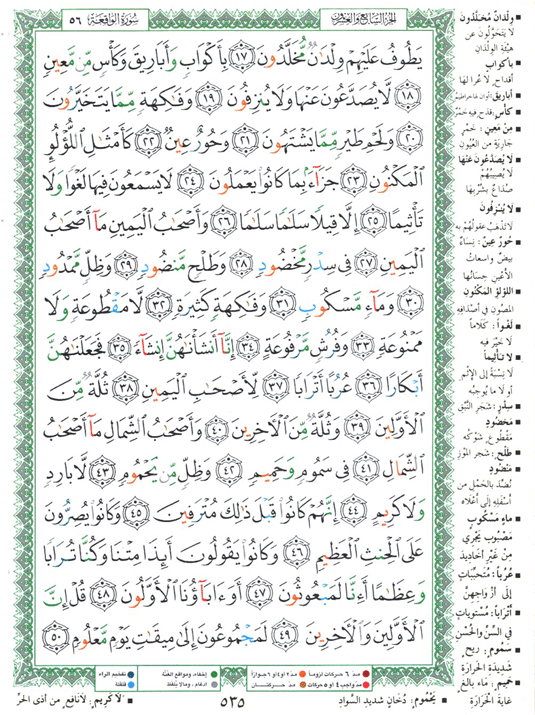 سُورَةُ الوَاقِعَة ٥٦
الجزء السابع والعشرون
يَطُوفُ عَلَيْهِمْ وِلْدَٰنٌ مُّخَلَّدُونَ ١٧ بِأَكْوَابٍ وَأَبَارِيقَ وَكَأْسٍ مِّن مَّعِينٍ
١٨ لَّا يُصَدَّعُونَ عَنْهَا وَلَا يُنزِفُونَ ١٩ وَفَٰكِهَةٍ مِّمَّا يَتَخَيَّرُونَ
٢٠ وَلَحْمِ طَيْرٍ مِّمَّا يَشْتَهُونَ ٢١ وَحُورٌ عِينٌ ٢٢ كَأَمْثَٰلِ اللُّؤْلُؤِ
الْمَكْنُونِ ٢٣ جَزَآءً بِمَا كَانُوا يَعْمَلُونَ ٢٤ لَا يَسْمَعُونَ فِيهَا لَغْوًا وَلَا
تَأْثِيمًا ٢٥ إِلَّا قِيلًا سَلَٰمًا سَلَٰمًا ٢٦ وَأَصْحَٰبُ الْيَمِينِ مَآ أَصْحَٰبُ
الْيَمِينِ ٢٧ فِى سِدْرٍ مَّخْضُودٍ ٢٨ وَطَلْحٍ مَّنضُودٍ ٢٩ وَظِلٍّ مَّمْدُودٍ
٣٠ وَمَآءٍ مَّسْكُوبٍ ٣١ وَفَٰكِهَةٍ كَثِيرَةٍ ٣٢ لَّا مَقْطُوعَةٍ وَلَا
مَمْنُوعَةٍ ٣٣ وَفُرُشٍ مَّرْفُوعَةٍ ٣٤ إِنَّآ أَنشَأْنَٰهُنَّ إِنشَآءً ٣٥ فَجَعَلْنَٰهُنَّ
أَبْكَارًا ٣٦ عُرُبًا أَتْرَابًا ٣٧ لِّأَصْحَٰبِ الْيَمِينِ ٣٨ ثُلَّةٌ مِّنَ
الْأَوَّلِينَ ٣٩ وَثُلَّةٌ مِّنَ الْءَاخِرِينَ ٤٠ وَأَصْحَٰبُ الشِّمَالِ مَآ أَصْحَٰبُ
الشِّمَالِ ٤١ فِى سَمُومٍ وَحَمِيمٍ ٤٢ وَظِلٍّ مِّن يَحْمُومٍ ٤٣ لَّا بَارِدٍ
وَلَا كَرِيمٍ ٤٤ إِنَّهُمْ كَانُوا قَبْلَ ذَٰلِكَ مُتْرَفِينَ ٤٥ وَكَانُوا يُصِرُّونَ
عَلَى الْحِنثِ الْعَظِيمِ ٤٦ وَكَانُوا يَقُولُونَ أَئِذَا مِتْنَا وَكُنَّا تُرَابًا
وَعِظَٰمًا أَءِنَّا لَمَبْعُوثُونَ ٤٧ أَوَءَابَآؤُنَا الْأَوَّلُونَ ٤٨ قُلْ إِنَّ
الْأَوَّلِينَ وَالْءَاخِرِينَ ٤٩ لَمَجْمُوعُونَ إِلَىٰ مِيقَٰتِ يَوْمٍ مَّعْلُومٍ ٥٠
وِلْدَانٌ مُخَلَّدُون
لَا يَتَحَوَّلُونَ عَن
هَيْئَةِ الوِلْدَانِ
بأكواب
أقداح لا عُرا لها
كأس: قدح فيه خمر
مِن مَعِين: خمر
جارية من العُيون
لا يُصدّعون عنها
لا يُصيبُهُمْ
صُداع بشُربها
لا يُنزفون
لا تذهب عقولهم به
حُور عِين: نساء
بيض واسعات
الأعين حسانها
اللؤلؤ المكنون
المصون في أصدافه
لغواً: كلاماً
لا خير فيه
لا تأثيماً
لا نسبة إلى الإثم
أو لا ما يُوجِبُه
سِدْر: شجر النّبق
مخضود
مقطوع شوكُه
طلح: شجر الموز
منضود
نُضّد بالحمل من
أسفله إلى أعلاه
ماء مسكوب
مصبوب يجري
من غير أخاديد
عُرُباً: متحبّبات
إلى أزواجهنّ
أتراباً: مستويات
في السّنّ والحُسن
سَمُوم: ريح
شديدة الحرارة
حَميم: ماء بالغ
غاية الحرارة
مدّ ٦ حركات لزوماً
مدّ ٢ أو ٤ أو ٦ جوازاً
مدّ واجب ٤ أو ٥ حركات
مدّ حركتان
إخفاء، ومواقع الغُنّة
ادغام، وما لا يُلفظ
تفخيم الراء
قلقلة
يَحْمُوم: دُخان شديد السَّواد
٥٣٥
لا كريم: لا نافع من أذى الحرّ